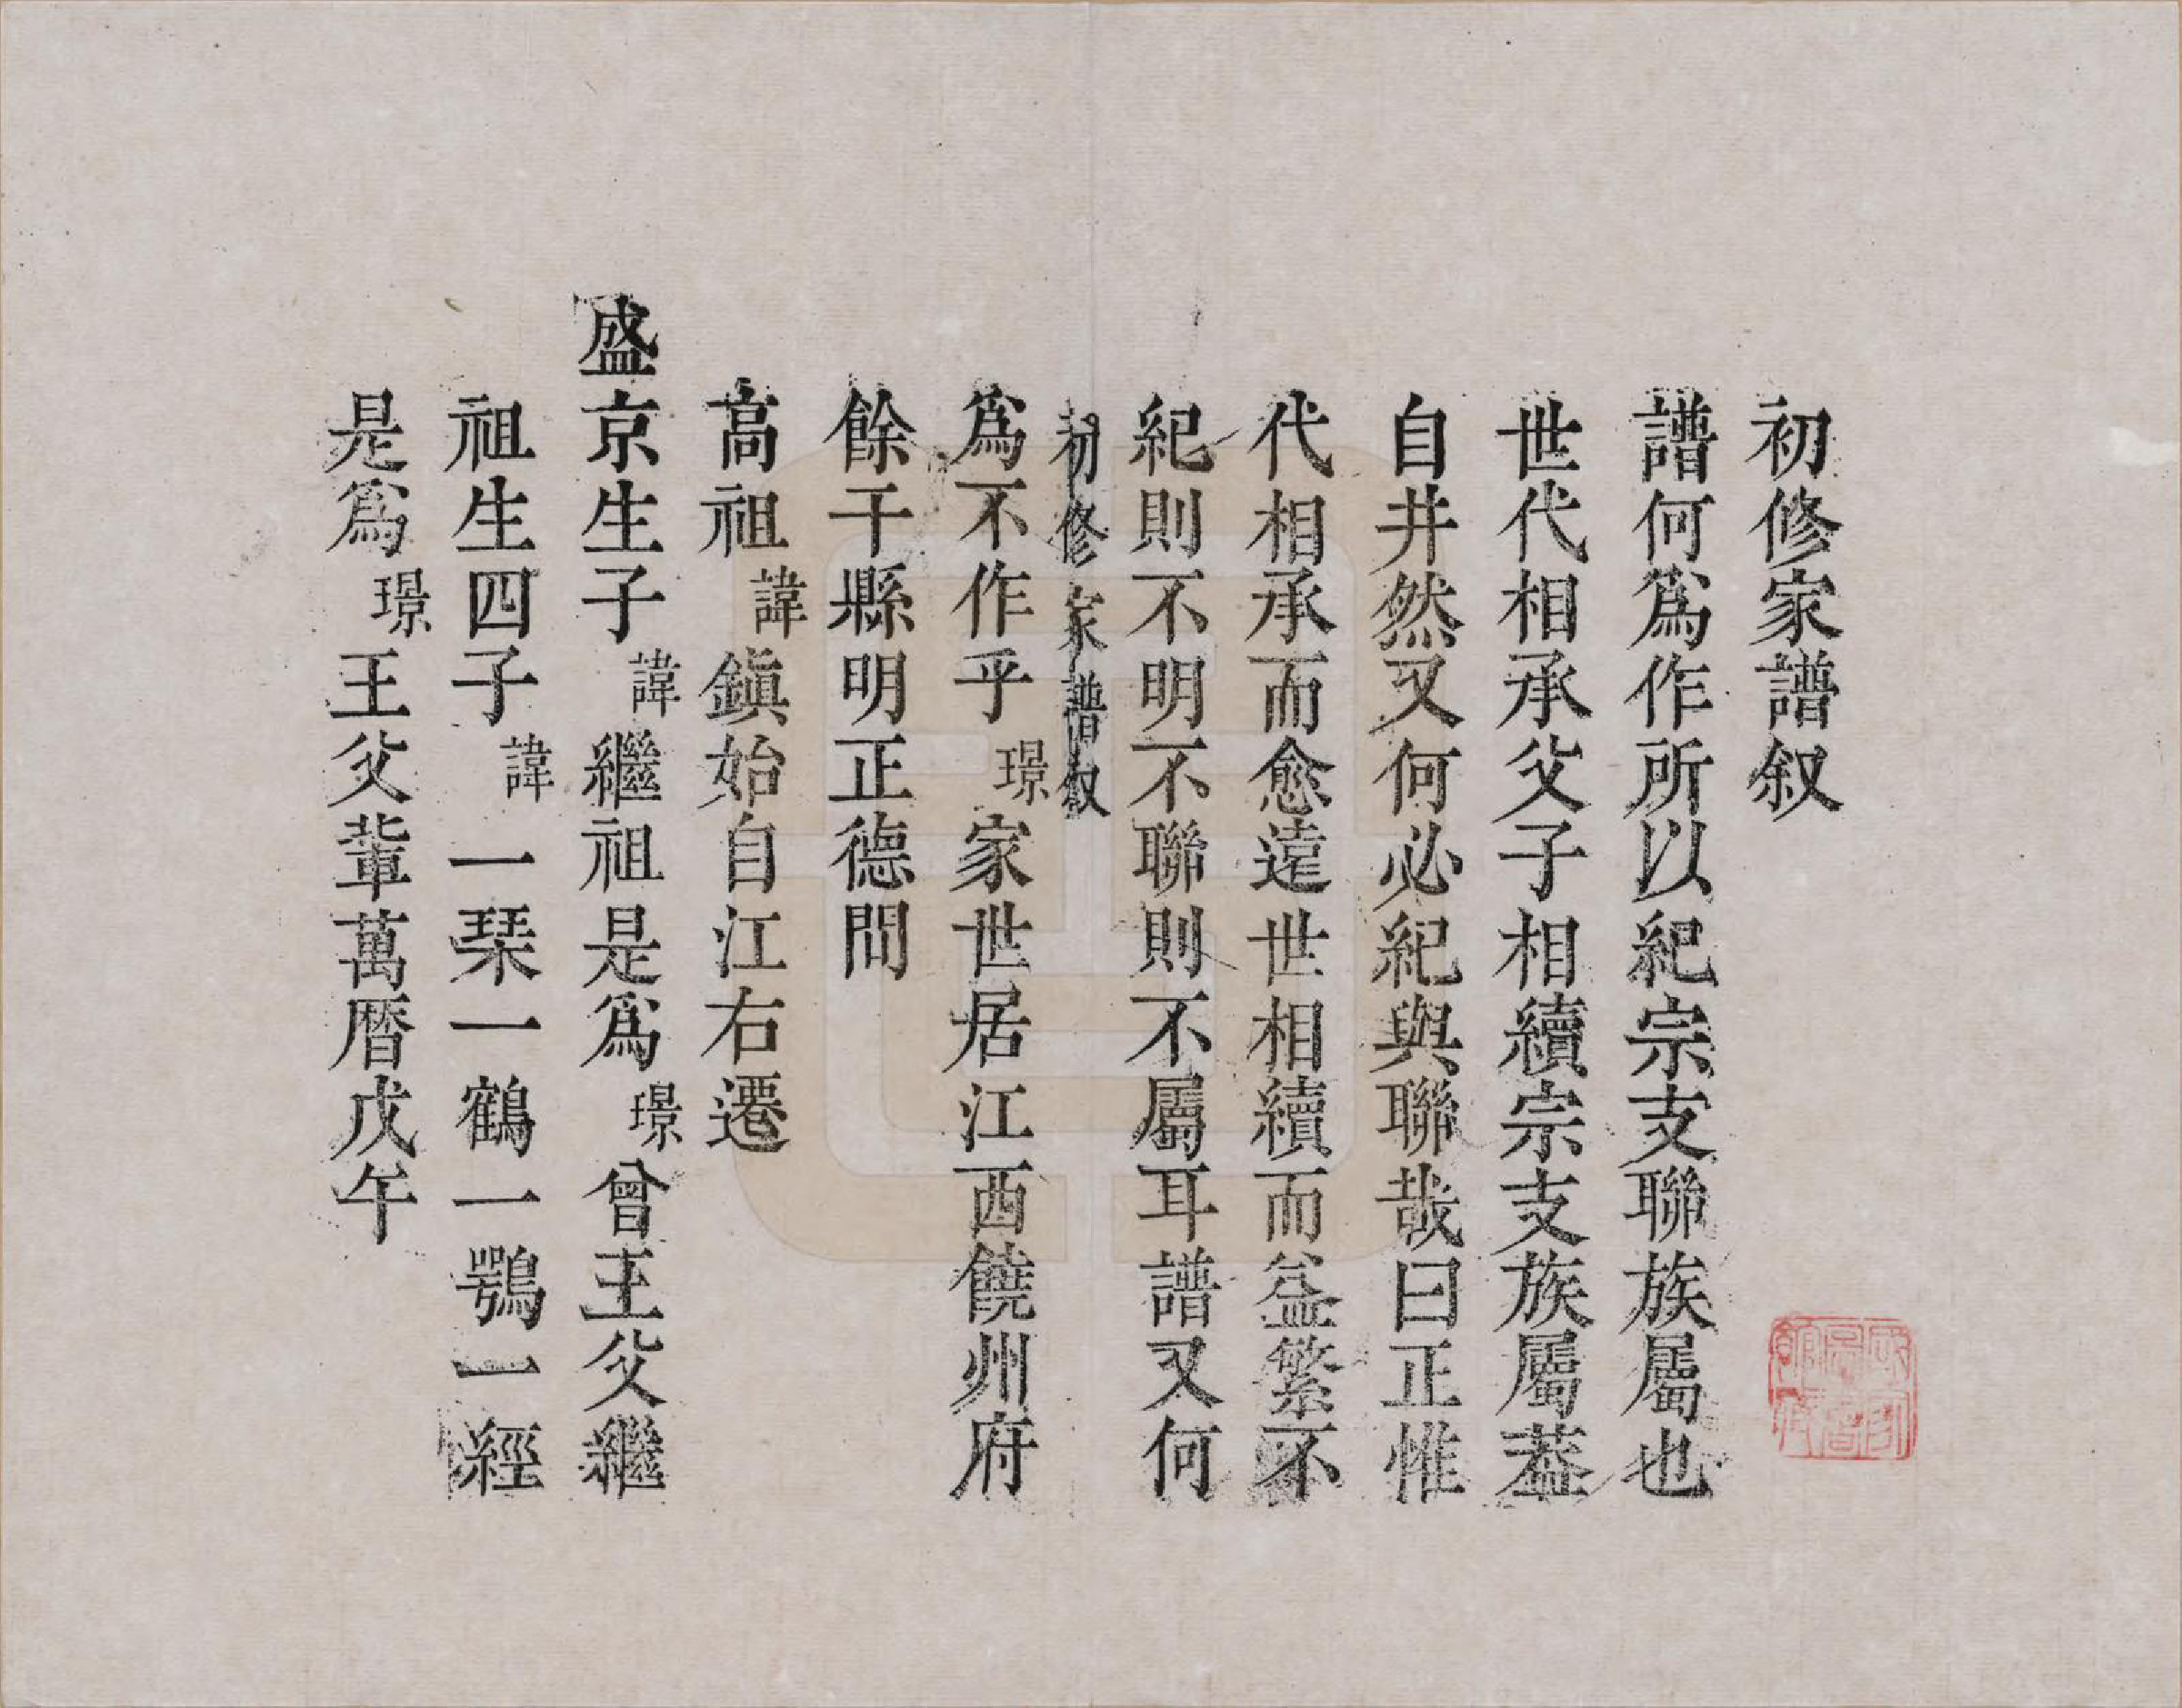 初修家譜叙
譜何爲作所以紀宗支聯族屬也
世代相承父子相續宗支族屬葢
自井然又何必紀與聯哉曰正惟
代相承而愈遠世相續而益繁不
紀則不明不聯則不屬耳譜又何
初修家譜叙
爲不作乎璟家世居江西饒州府
餘干縣明正德間
高祖諱鎮始自江右遷
盛京生子諱繼祖是爲璟曾王父繼
祖生四子諱一琹一鶴一鶚一經
是爲璟王父輩萬曆戊午